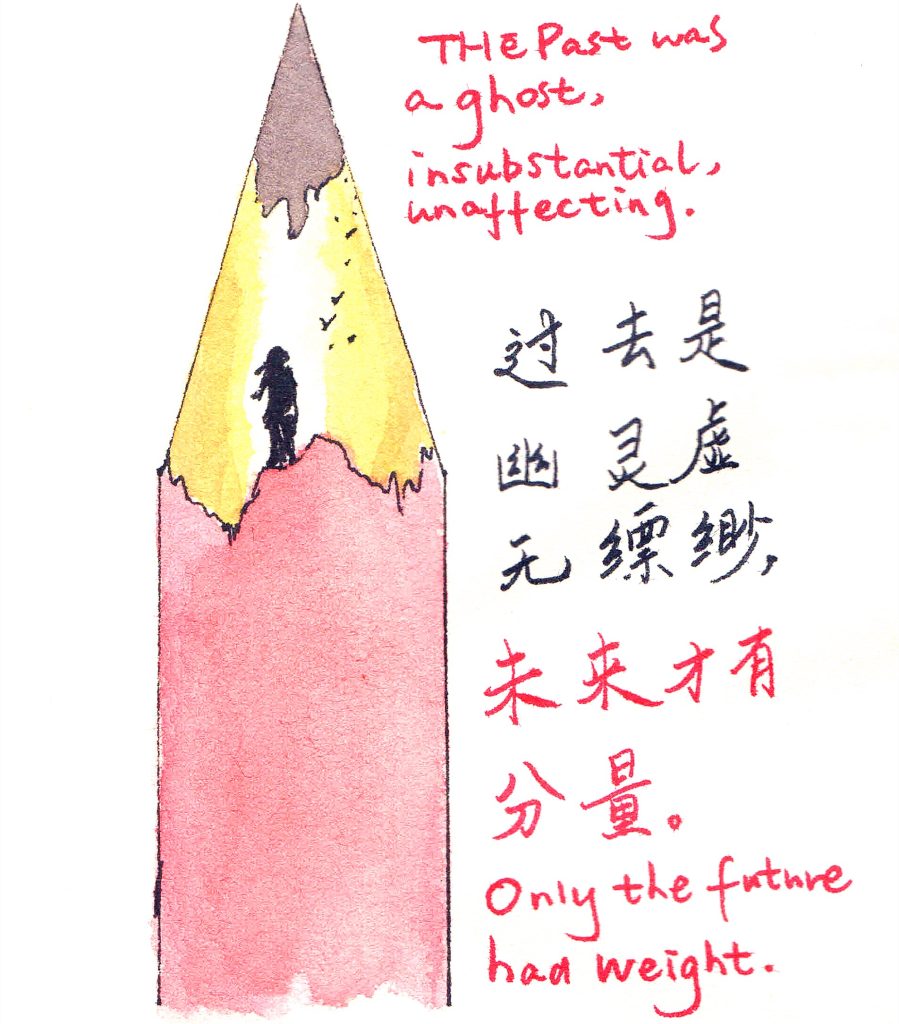 THE Past was
a ghost,
insubstantial,
unaffecting.
过去是
幽灵虚
无缥缈,
未来才有
分量。
Only the future
had weight.